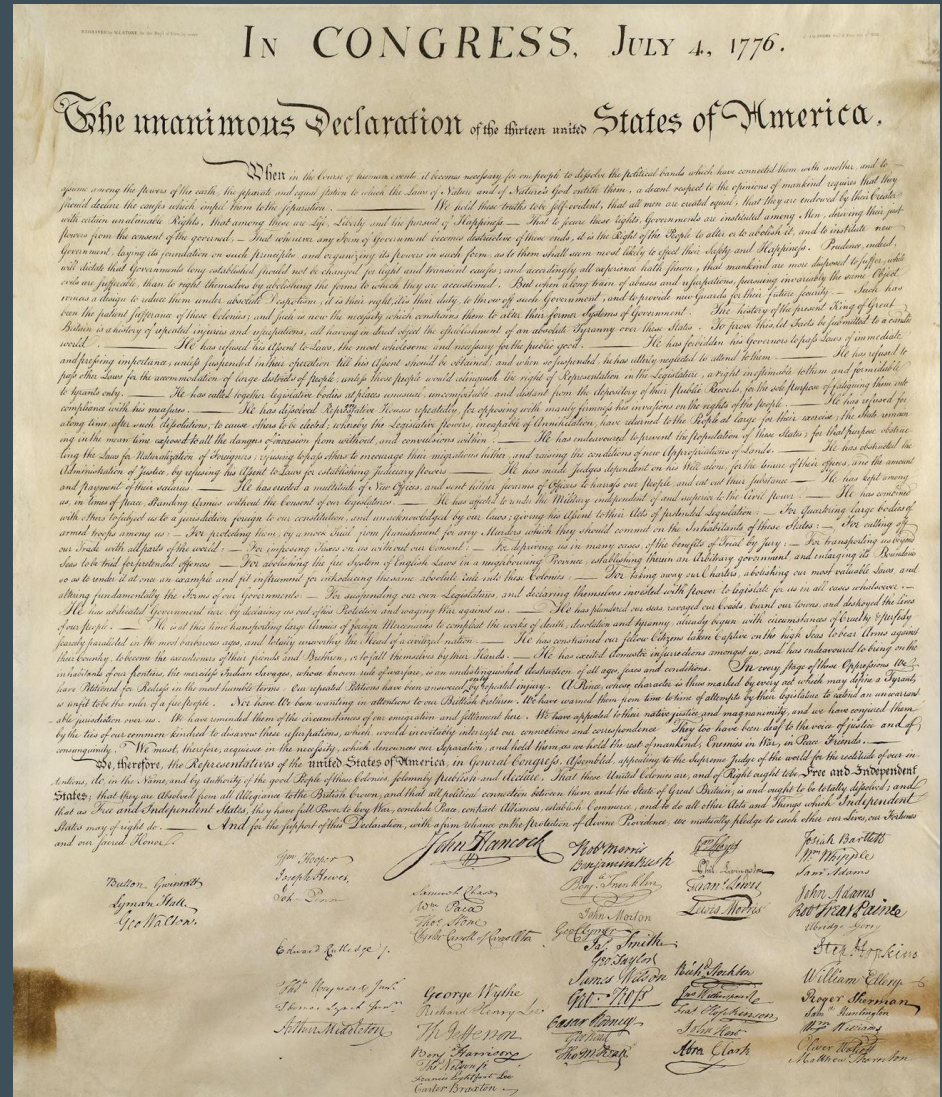 IN CONGRESS, JULY 4, 1776.
The unanimous Declaration of the thirteen united States of America,
When in the Course of human events, it becomes necessary for one people to dissolve the political bands which have connected them with another, and to
assume among the powers of the earth, the separate and equal station to which the Laws of Nature and of Nature's God entitle them, a decent respect to the opinions of mankind requires that they
should declare the causes which impel them to the separation. — We hold these truths to be self-evident, that all men are created equal, that they are endowed by their Creator
with certain unalienable Rights, that among these are Life, Liberty and the pursuit of Happiness. — That to secure these rights, Governments are instituted among Men, deriving their just
powers from the consent of the governed, — That whenever any Form of Government becomes destructive of these ends, it is the Right of the People to alter or to abolish it, and to institute new
Government, laying its foundation on such principles and organizing its powers in such form, as to them shall seem most likely to effect their Safety and Happiness. Prudence, indeed,
will dictate that Governments long established should not be changed for light and transient causes; and accordingly all experience hath shewn, that mankind are more disposed to suffer, while
evils are sufferable, than to right themselves by abolishing the forms to which they are accustomed. But when a long train of abuses and usurpations, pursuing invariably the same Object
evinces a design to reduce them under absolute Despotism, it is their right, it is their duty, to throw off such Government, and to provide new Guards for their future security. — Such has
been the patient sufferance of these Colonies; and such is now the necessity which constrains them to alter their former Systems of Government. The history of the present King of Great
Britain is a history of repeated injuries and usurpations, all having in direct object the establishment of an absolute Tyranny over these States. To prove this, let Facts be submitted to a candid
world. — He has refused his Assent to Laws, the most wholesome and necessary for the public good. — He has forbidden his Governors to pass Laws of immediate
and pressing importance, unless suspended in their operation till his Assent should be obtained; and when so suspended, he has utterly neglected to attend to them. — He has refused to
pass other Laws for the accommodation of large districts of people, unless those people would relinquish the right of Representation in the Legislature, a right inestimable to them and formidable
to tyrants only. — He has called together legislative bodies at places unusual, uncomfortable, and distant from the depository of their Public Records, for the sole purpose of fatiguing them into
compliance with his measures. — He has dissolved Representative Houses repeatedly, for opposing with manly firmness his invasions on the rights of the people. — He has refused for
a long time, after such dissolutions, to cause others to be elected; whereby the Legislative powers, incapable of Annihilation, have returned to the People at large for their exercise; the State remain
ing in the mean time exposed to all the dangers of invasion from without, and convulsions within. — He has endeavoured to prevent the population of these States; for that purpose obstruc
ting the Laws for Naturalization of Foreigners; refusing to pass others to encourage their migrations hither, and raising the conditions of new Appropriations of Lands. — He has obstructed the
Administration of Justice, by refusing his Assent to Laws for establishing Judiciary powers. — He has made Judges dependent on his Will alone, for the tenure of their offices, and the amount
and payment of their salaries. — He has erected a multitude of New Offices, and sent hither swarms of Officers to harrass our people, and eat out their substance. — He has kept among
us, in times of peace, Standing Armies without the Consent of our legislatures. — He has affected to render the Military independent of and superior to the Civil power. — He has combined
with others to subject us to a jurisdiction foreign to our constitution, and unacknowledged by our laws; giving his Assent to their Acts of pretended Legislation: — For Quartering large bodies of
armed troops among us: — For protecting them, by a mock Trial, from punishment for any Murders which they should commit on the Inhabitants of these States: — For cutting off
our Trade with all parts of the world: — For imposing Taxes on us without our Consent: — For depriving us in many cases, of the benefits of Trial by Jury: — For transporting us beyond
Seas to be tried for pretended offences — For abolishing the free System of English Laws in a neighbouring Province, establishing therein an Arbitrary government, and enlarging its Boundaries
so as to render it at once an example and fit instrument for introducing the same absolute rule into these Colonies: — For taking away our Charters, abolishing our most valuable Laws, and
altering fundamentally the Forms of our Governments: — For suspending our own Legislatures, and declaring themselves invested with power to legislate for us in all cases whatsoever. —
He has abdicated Government here, by declaring us out of his Protection and waging War against us. — He has plundered our seas, ravaged our Coasts, burnt our towns, and destroyed the lives
of our people. — He is at this time transporting large Armies of foreign Mercenaries to compleat the works of death, desolation and tyranny, already begun with circumstances of Cruelty & perfidy
scarcely paralleled in the most barbarous ages, and totally unworthy the Head of a civilized nation. — He has constrained our fellow Citizens taken Captive on the high Seas to bear Arms against
their Country, to become the executioners of their friends and Brethren, or to fall themselves by their Hands. — He has excited domestic insurrections amongst us, and has endeavoured to bring on the
inhabitants of our frontiers, the merciless Indian Savages, whose known rule of warfare, is an undistinguished destruction of all ages, sexes and conditions. In every stage of these Oppressions We
have Petitioned for Redress in the most humble terms: Our repeated Petitions have been answered only by repeated injury. A Prince, whose character is thus marked by every act which may define a Tyrant,
is unfit to be the ruler of a free people. Nor have We been wanting in attentions to our Brittish brethren. We have warned them from time to time of attempts by their legislature to extend an unwarrant
able jurisdiction over us. We have reminded them of the circumstances of our emigration and settlement here. We have appealed to their native justice and magnanimity, and we have conjured them
by the ties of our common kindred to disavow these usurpations, which, would inevitably interrupt our connections and correspondence. They too have been deaf to the voice of justice and of
consanguinity. We must, therefore, acquiesce in the necessity, which denounces our Separation, and hold them, as we hold the rest of mankind, Enemies in War, in Peace Friends. —
We, therefore, the Representatives of the united States of America, in General Congress, Assembled, appealing to the Supreme Judge of the world for the rectitude of our in
tentions, do, in the Name, and by Authority of the good People of these Colonies, solemnly publish and declare, That these United Colonies are, and of Right ought to be Free and Independent
States; that they are Absolved from all Allegiance to the British Crown, and that all political connection between them and the State of Great Britain, is and ought to be totally dissolved; and
that as Free and Independent States, they have full Power to levy War, conclude Peace, contract Alliances, establish Commerce, and to do all other Acts and Things which Independent
States may of right do. — And for the support of this Declaration, with a firm reliance on the protection of divine Providence, we mutually pledge to each other our Lives, our Fortunes
and our sacred Honor.
Button Gwinnett
Lyman Hall
Geo Walton.
Wm Hooper
Joseph Hewes,
John Penn
Edward Rutledge /.
Thos Heyward Junr.
Thomas Lynch Junr.
Arthur Middleton
John Hancock
Samuel Chase
Wm Paca
Thos Stone
Charles Carroll of Carrollton
George Wythe
Richard Henry Lee
Th Jefferson
Benj Harrison
Thos Nelson jr.
Francis Lightfoot Lee
Carter Braxton
Robt Morris
Benjamin Rush
Benj. Franklin
John Morton
Geo Clymer
Jas. Smith
Geo. Taylor
James Wilson
Geo. Ross
Caesar Rodney
Geo Read
Tho M:Kean
Wm Floyd
Phil. Livingston
Frans. Lewis
Lewis Morris
Richd. Stockton
Jno Witherspoon
Fras. Hopkinson
John Hart
Abra Clark
Josiah Bartlett
Wm Whipple
Saml Adams
John Adams
Robt Treat Paine
Elbridge Gerry
Step. Hopkins
William Ellery
Roger Sherman
Saml Huntington
Wm Williams
Oliver Wolcott
Matthew Thornton